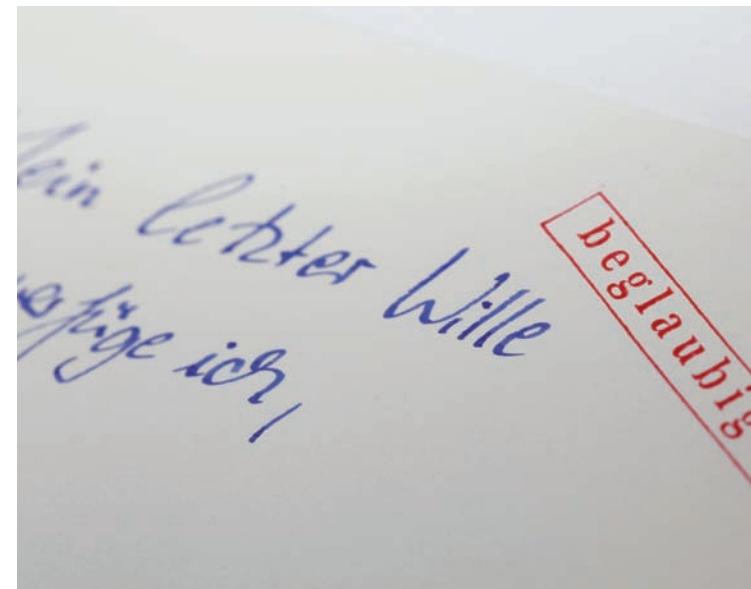 Mein letzter Wille
verfüge ich,
beglaubig